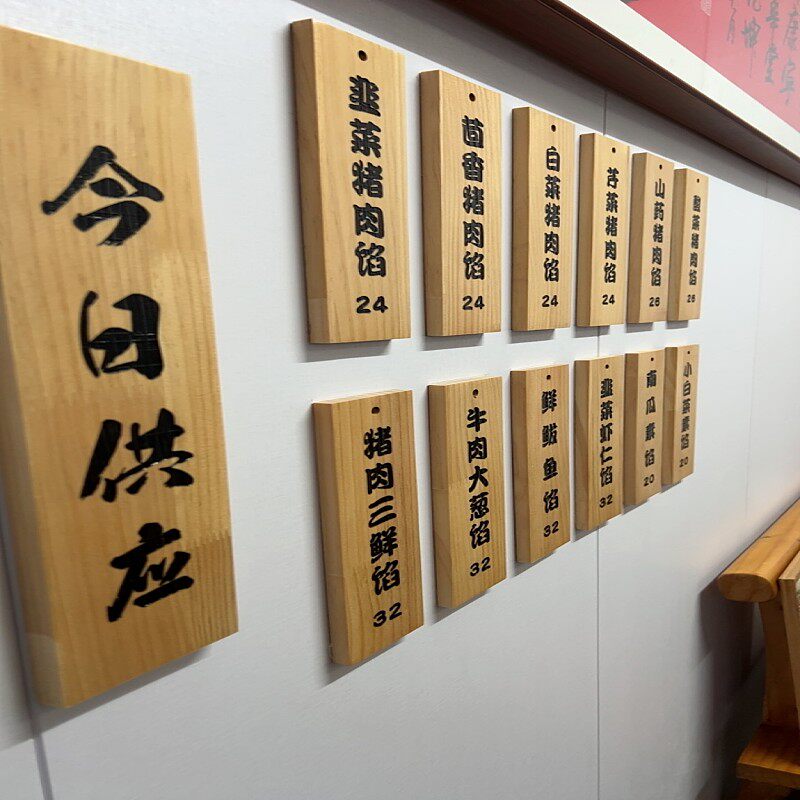 今日供应
韭菜猪肉馅
24
茴香猪肉馅
24
白菜猪肉馅
24
芹菜猪肉馅
24
山药猪肉馅
26
酸菜猪肉馅
26
猪肉三鲜馅
32
牛肉大葱馅
32
鲜鲅鱼馅
32
韭菜虾仁馅
32
南瓜素馅
20
小白菜素馅
20